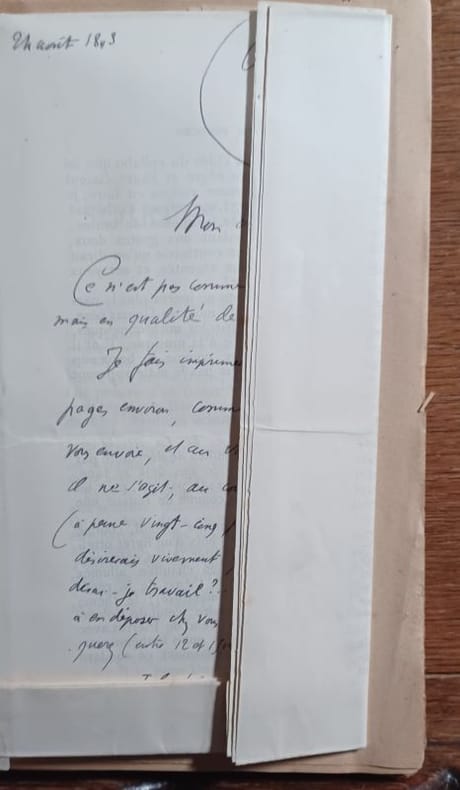 24 août 1843
Mon
Ce n'est pas comme
mais en qualité de
Je fais imprime
pages environ, comm
vous envoie, et au
il ne s'agit, au co
(à peine vingt-cinq
désirerais vivement
à en déposer chez vous
(entre 12 et